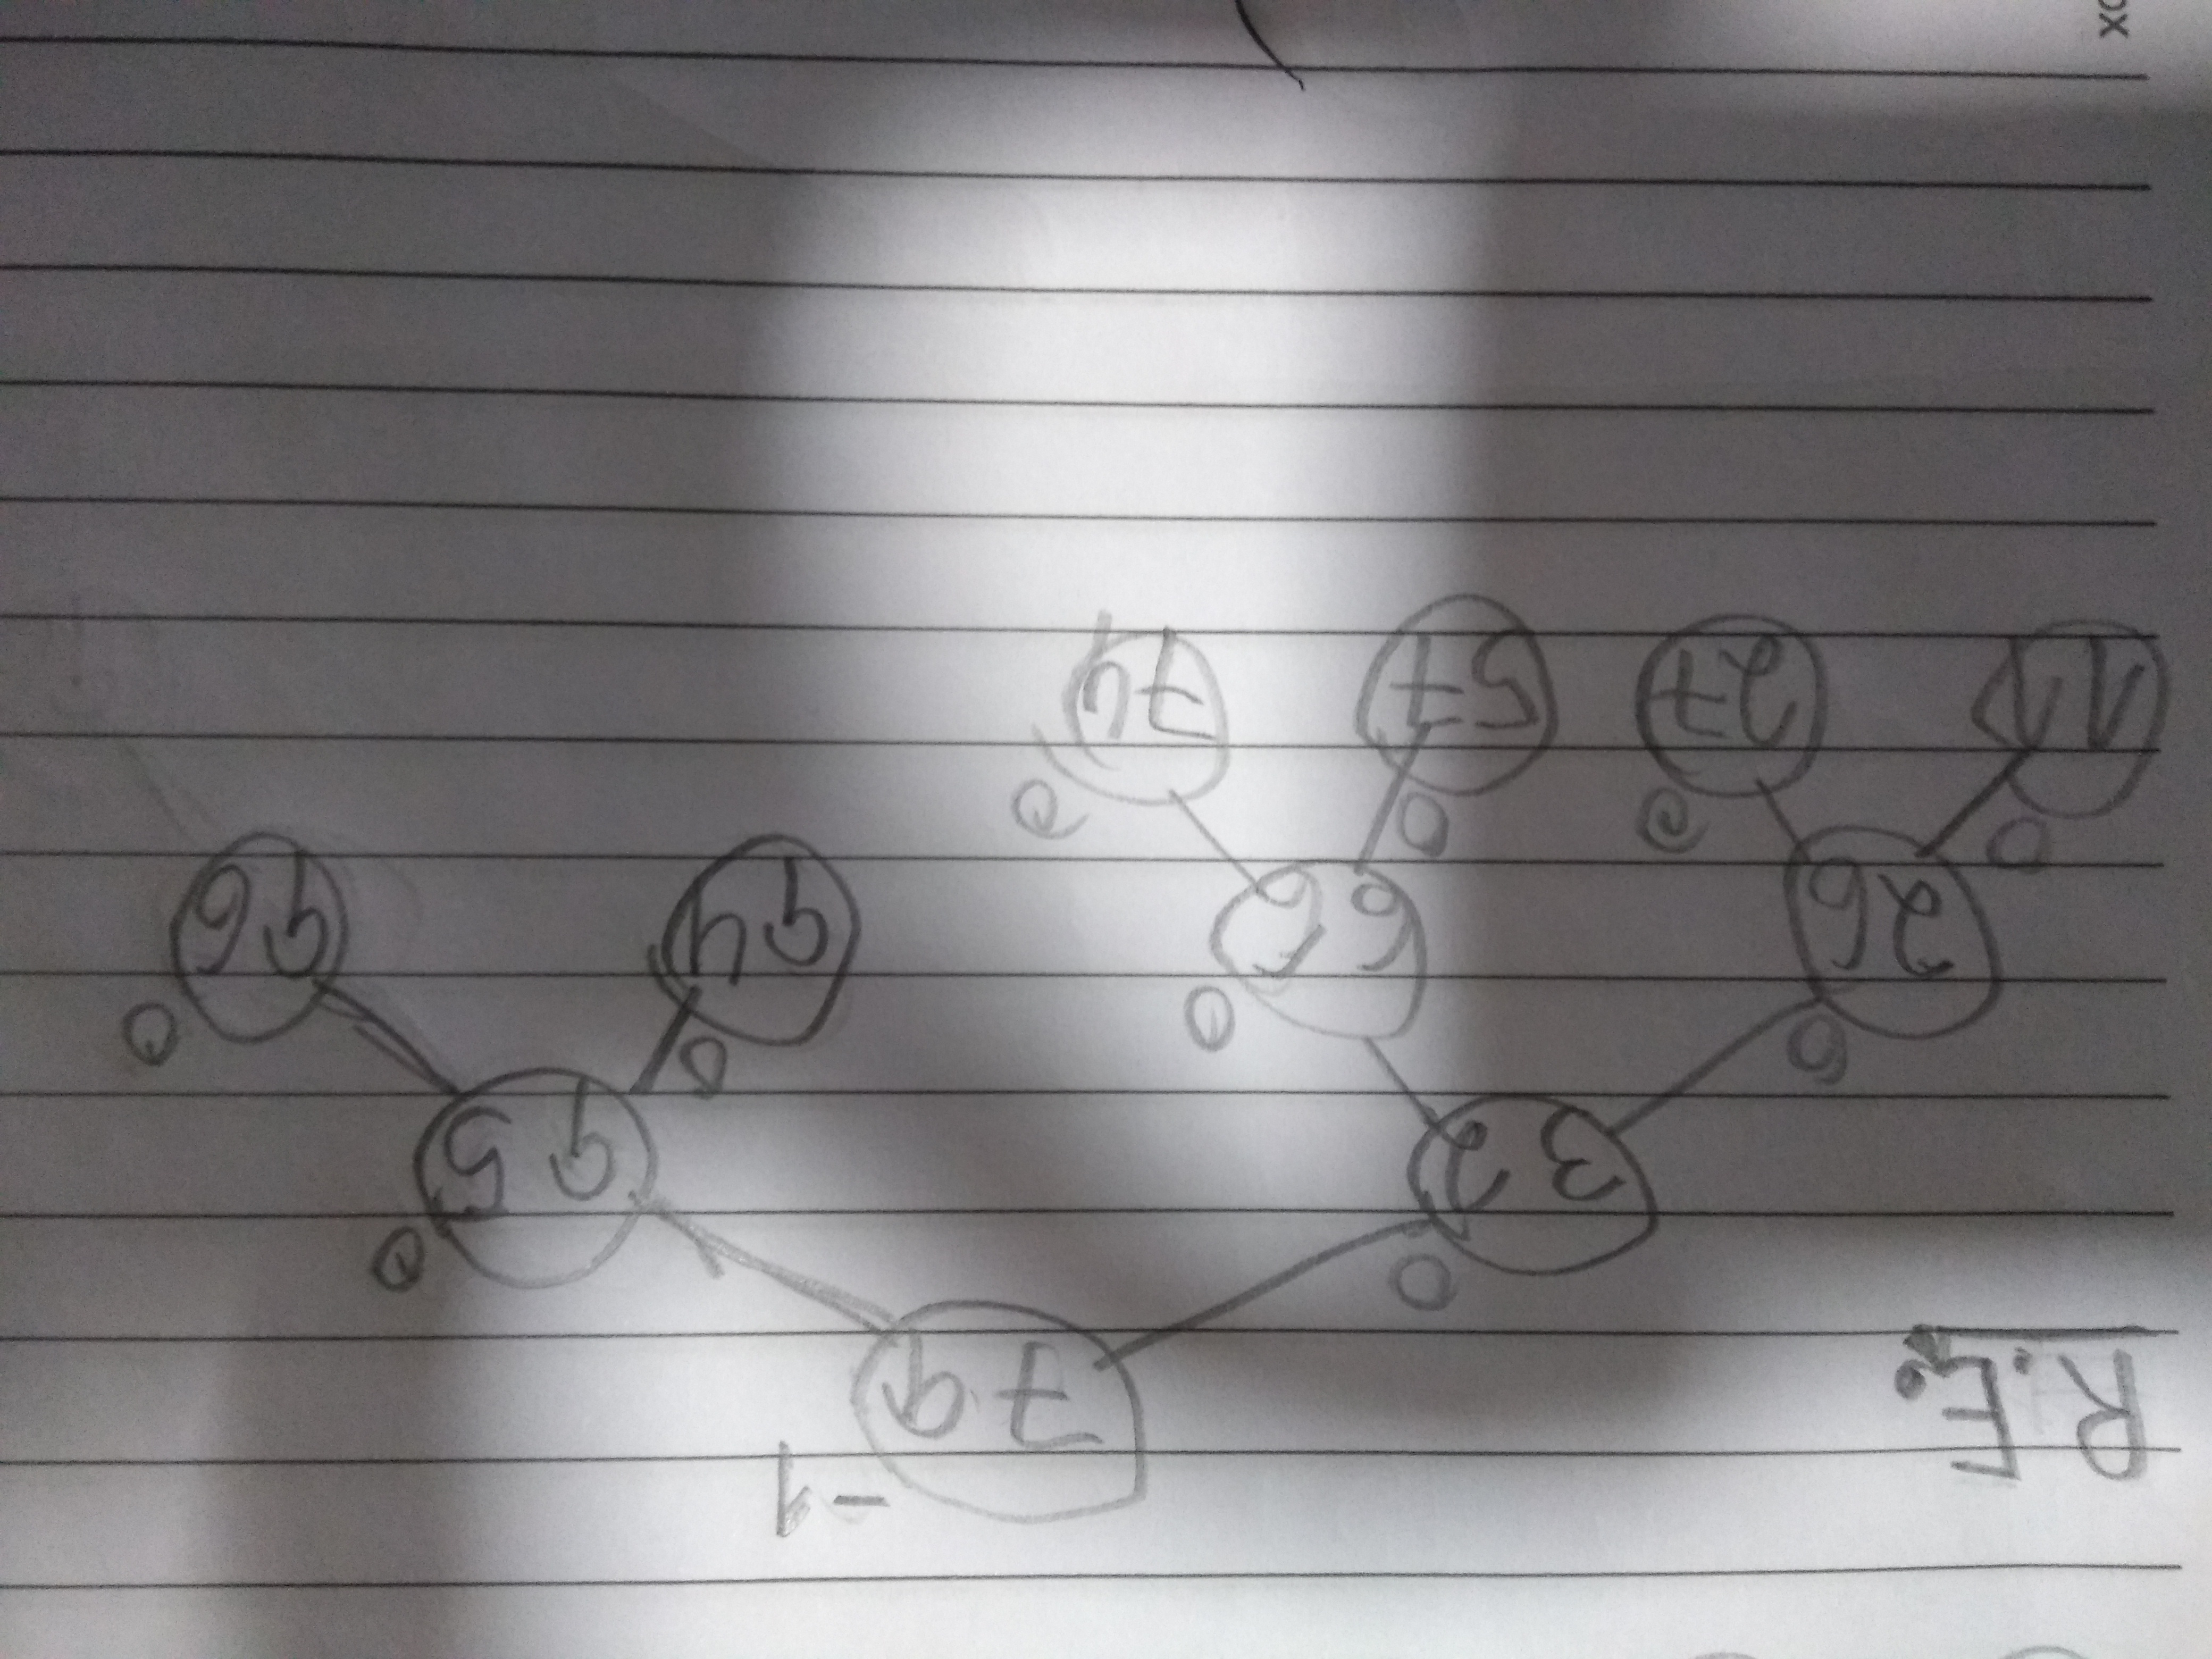 R.E.
79 -1
32 0
95 0
26 0
66 0
94 0
96 0
11 0
27 0
57 0
74 0
ox